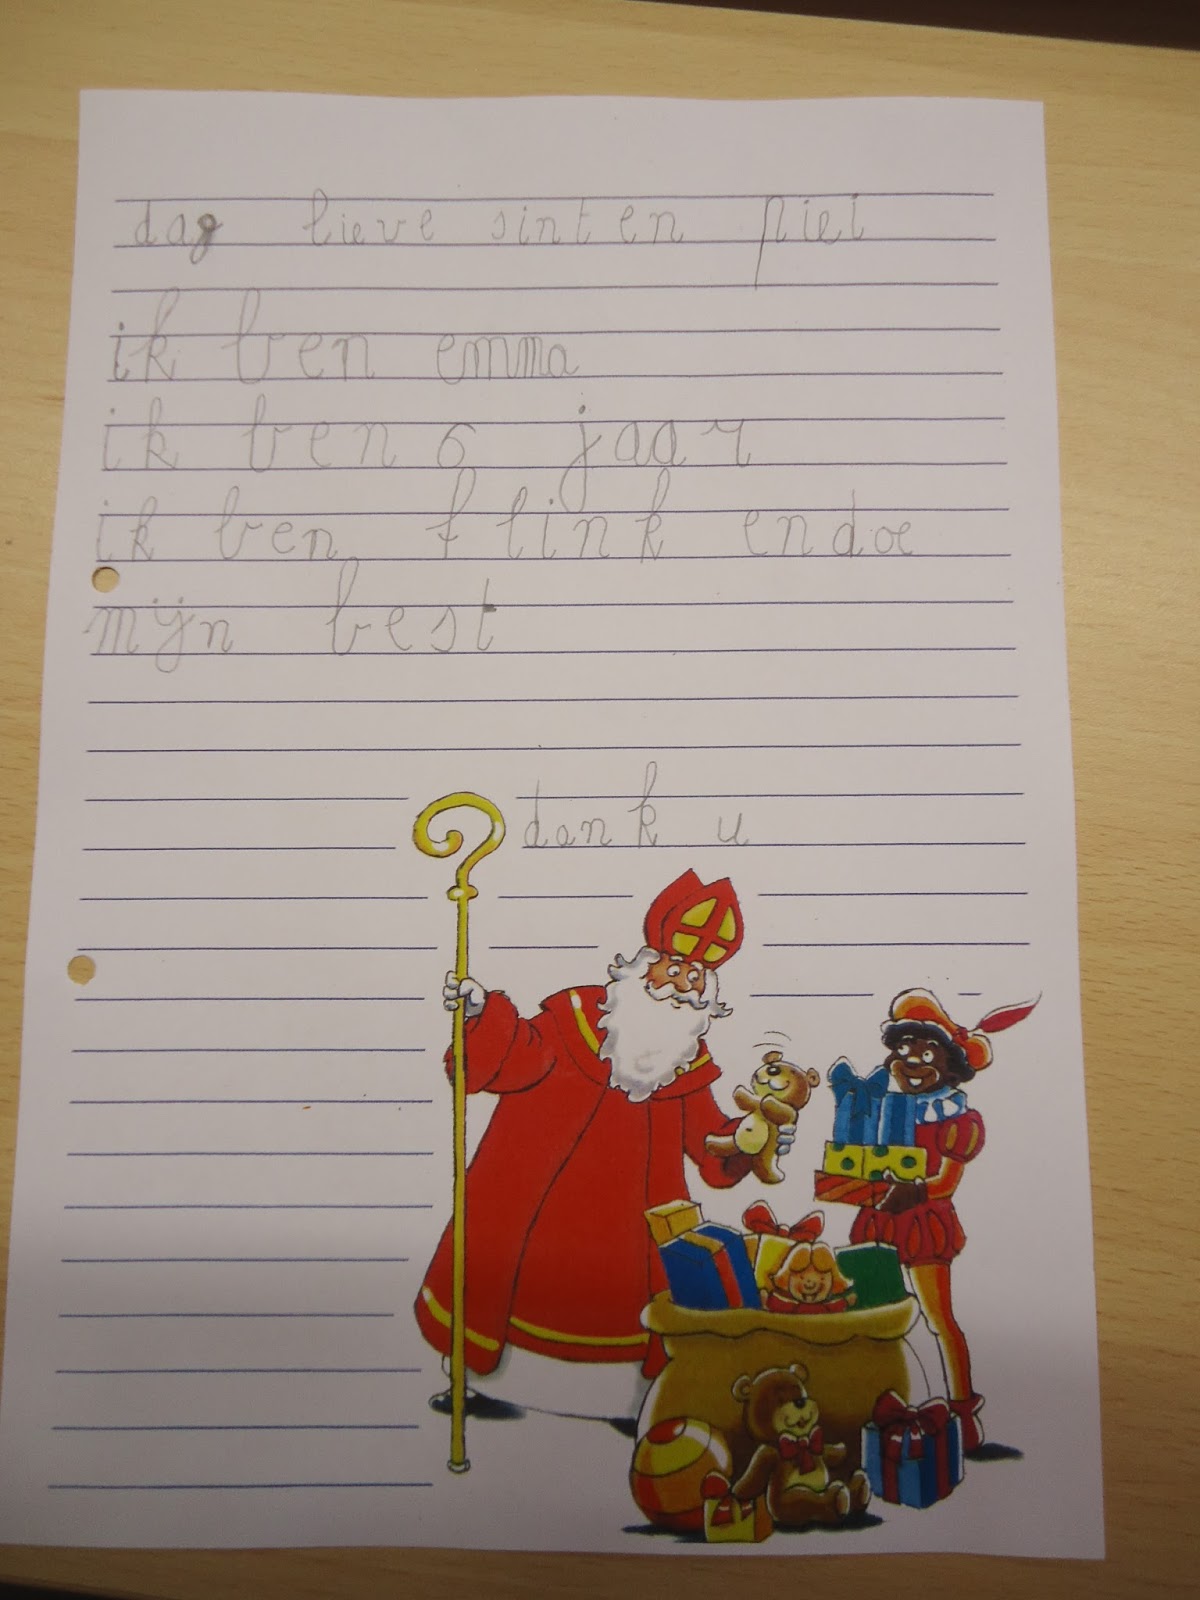 dag lieve sint en piet
ik ben emma
ik ben 6 jaar
ik ben flink en doe
mijn best
dank u